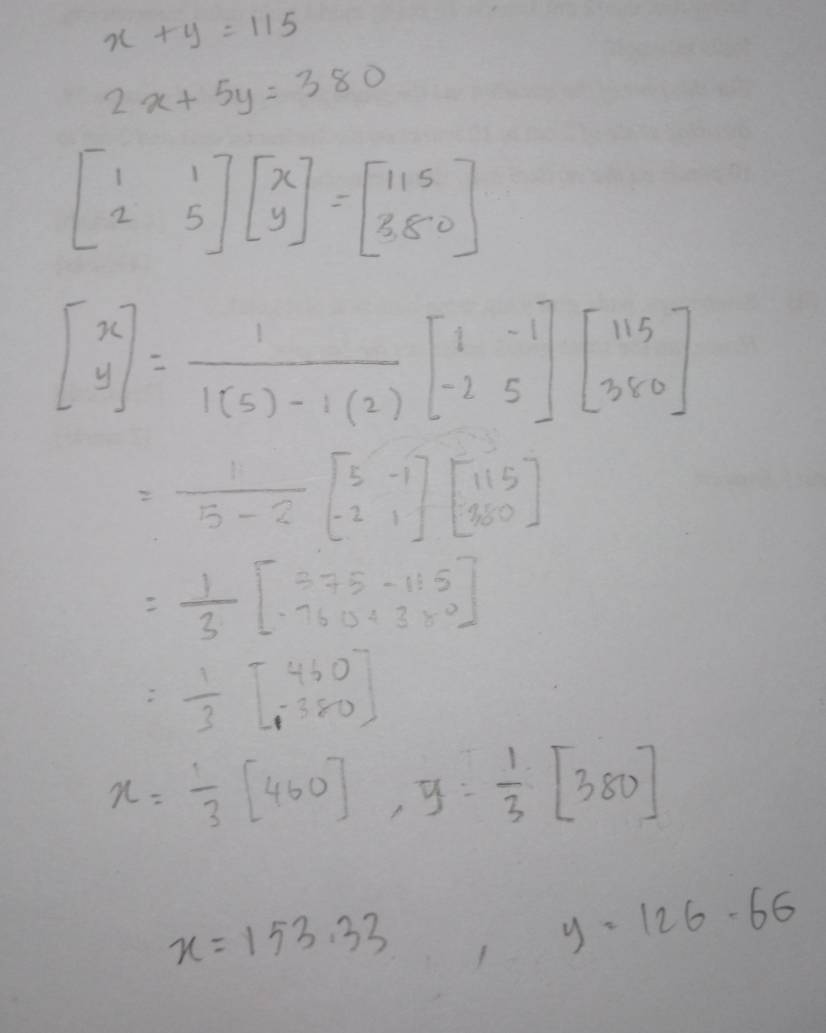 x + y = 115
2x + 5y = 380
[1 1; 2 5] [x; y] = [115; 380]
[x; y] = 1/(1(5) - 1(2)) [1 -1; -2 5] [115; 380]
= 1/(5 - 2) [5 -1; -2 1] [115; 380]
= 1/3 [575 - 115; -760 + 380]
= 1/3 [460; -380]
x = 1/3 [460] , y = 1/3 [380]
x = 153.33 , y = 126.66